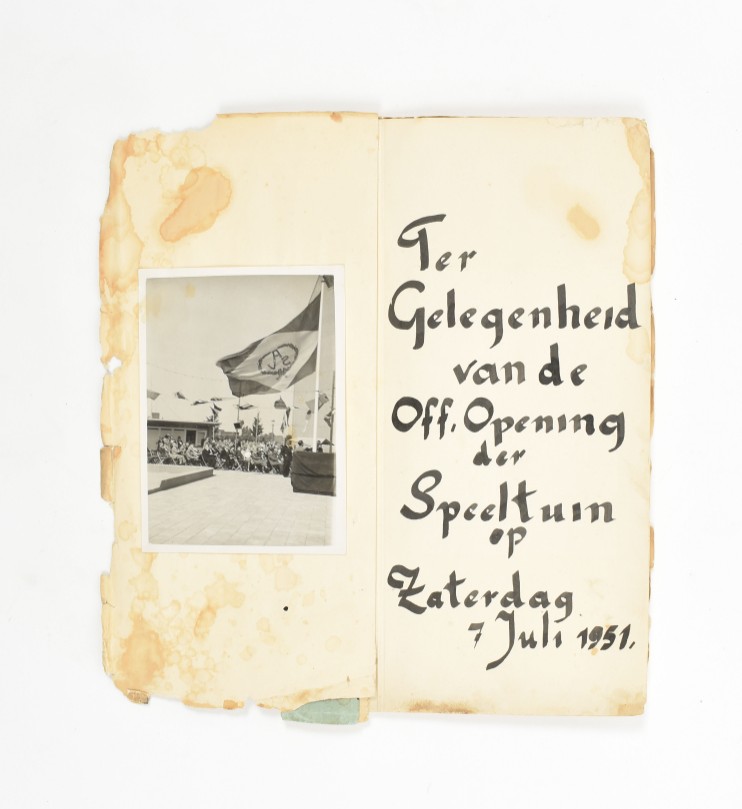 Ter
Gelegenheid
van de
Off. Opening
der
Speeltuin
op
Zaterdag
7 Juli 1951.